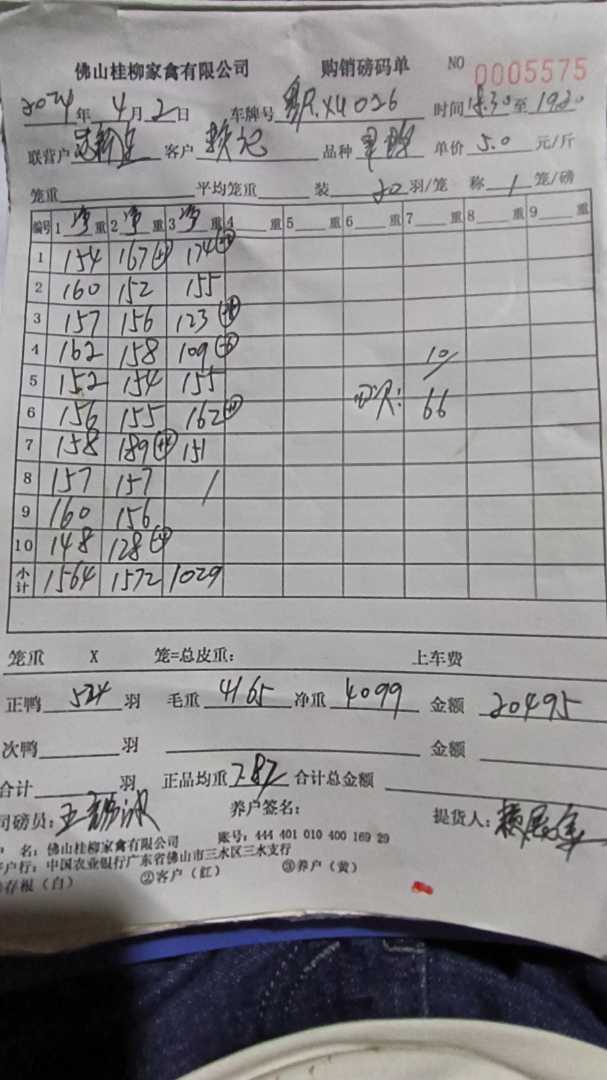 佛山桂柳家禽有限公司 购销磅码单 NO 0005575
2024年 4月 2日 车牌号 X4026 时间 至 19:20
联营户 客户 品种 单价 5.0 元/斤
笼重 平均笼重 装 20 羽/笼 称 1 笼/磅
编号 1 净 重 2 净 重 3 净 重 4 重 5 重 6 重 7 重 8 重 9 重
1 154 167 174
2 160 152 155
3 157 156 123
4 162 158 109
5 152 154 155
6 156 155 162
7 158 189 151
8 157 157 /
9 160 156
10 148 128
小计 1564 1572 1029
10/
66
笼重 X 笼=总皮重: 上车费
正鸭 524 羽 毛重 4165 净重 4099 金额 20495
次鸭 羽 金额
合计 羽 正品均重 7.82 合计总金额
司磅员: 养户签名: 提货人:
户 名: 佛山桂柳家禽有限公司 账号: 444 401 010 400 169 29
开户行: 中国农业银行广东省佛山市三水区三水支行
①存根(白) ②客户(红) ③养户(黄)